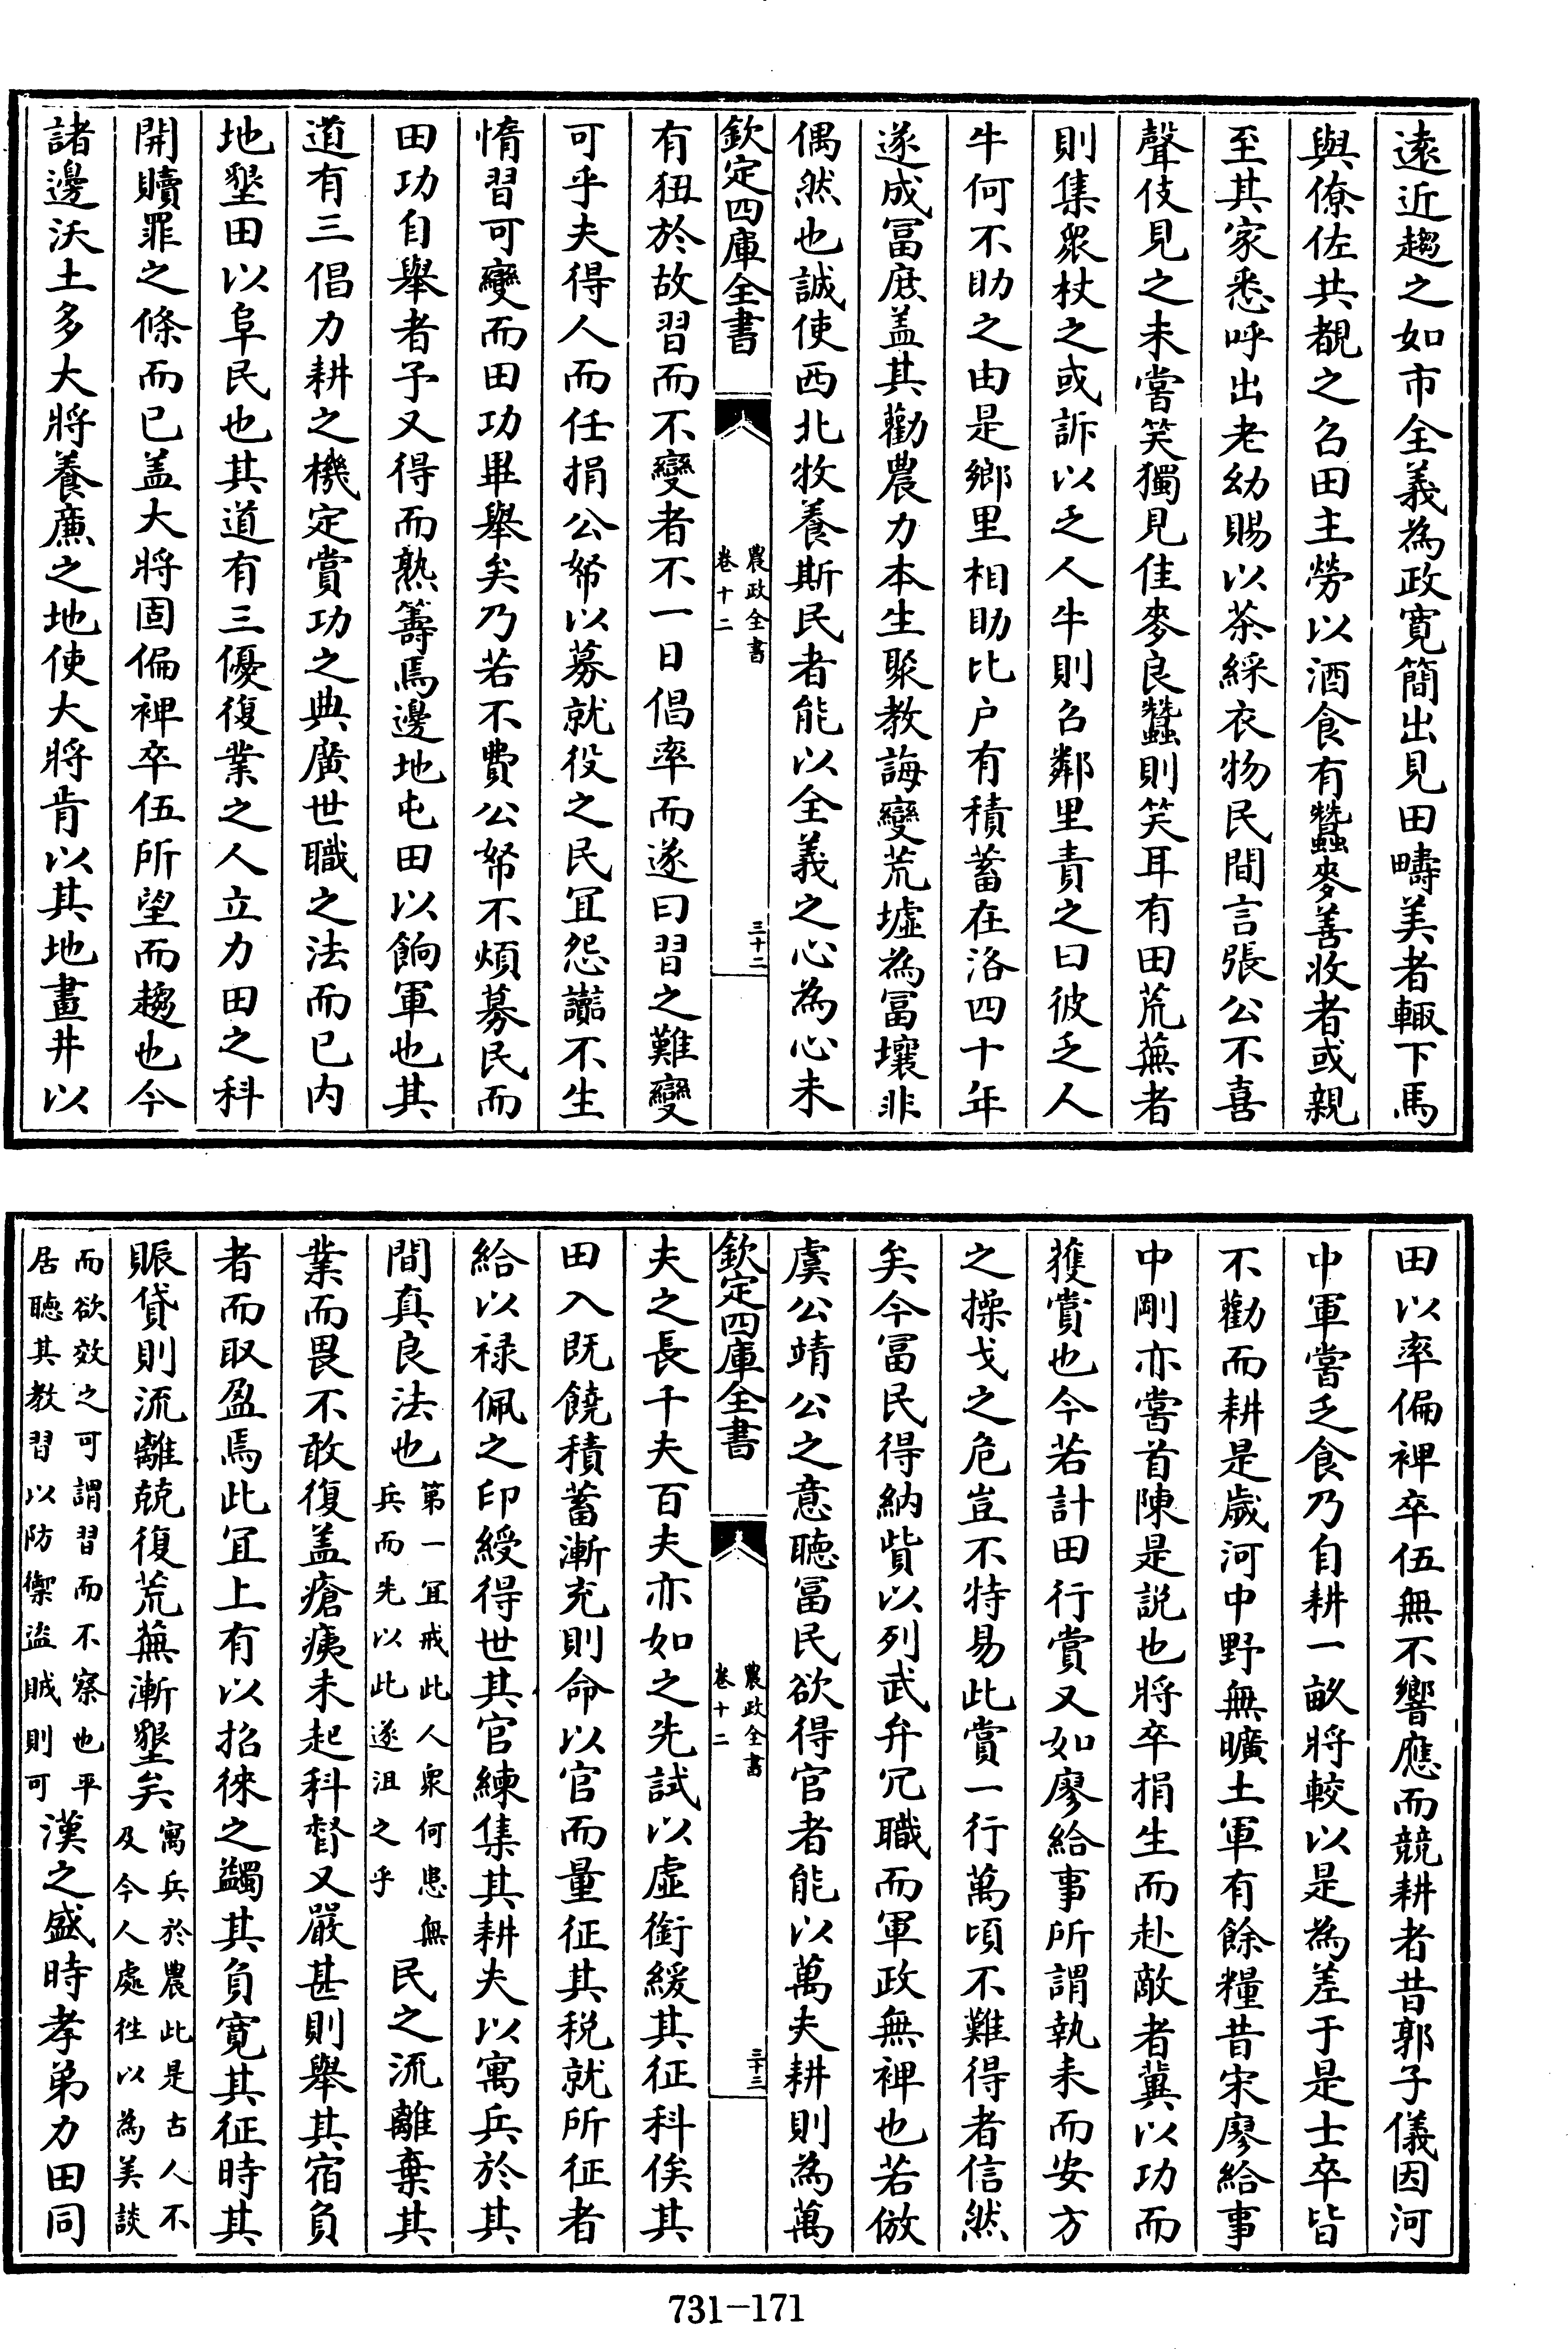 遠近趨之如市全義為政寛簡出見田疇美者輙下馬
與僚佐共覩之召田主勞以酒食有蠶麥善收者或親
至其家悉呼出老幼賜以茶綵衣物民間言張公不喜
聲伎見之未嘗笑獨見佳麥良蠶則笑耳有田荒蕪者
則集衆杖之或訴以乏人牛則召鄰里責之曰彼乏人
牛何不助之由是鄉里相助比户有積蓄在洛四十年
遂成冨庶盖其勸農力本生聚教誨變荒墟為冨壤非
偶然也誠使西北牧養斯民者能以全義之心為心未
欽定四庫全書
農政全書
卷十二
三十二
有狃於故習而不變者不一日倡率而遂曰習之難變
可乎夫得人而任捐公帑以募就役之民冝怨讟不生
惰習可變而田功畢舉矣乃若不費公帑不煩募民而
田功自舉者予又得而熟籌焉邊地屯田以餉軍也其
道有三倡力耕之機定賞功之典廣世職之法而已内
地墾田以阜民也其道有三優復業之人立力田之科
開贖罪之條而已盖大將固偏裨卒伍所望而趨也今
諸邊沃土多大將養廉之地使大將肯以其地畫井以
田以率偏裨卒伍無不響應而競耕者昔郭子儀因河
中軍嘗乏食乃自耕一畝將較以是為差于是士卒皆
不勸而耕是歲河中野無曠土軍有餘糧昔宋廖給事
中剛亦嘗首陳是説也將卒捐生而赴敵者冀以功而
獲賞也今若計田行賞又如廖給事所謂執耒而安方
之操戈之危豈不特易此賞一行萬頃不難得者信然
矣今冨民得納貲以列武弁冗職而軍政無裨也若倣
虞公靖公之意聽冨民欲得官者能以萬夫耕則為萬
欽定四庫全書
農政全書
卷十二
三十三
夫之長千夫百夫亦如之先試以虛銜緩其征科俟其
田入既饒積蓄漸充則命以官而量征其税就所征者
給以禄佩之印綬得世其官練集其耕夫以寓兵於其
間真良法也第一冝戒此人衆何患無兵而先以此遂沮之乎民之流離棄其
業而畏不敢復盖瘡痍未起科督又嚴甚則舉其宿負
者而取盈焉此冝上有以招徠之蠲其負寛其征時其
賑貸則流離兢復荒蕪漸墾矣寓兵於農此是古人不及今人處徃以為美談
而欲效之可謂習而不察也平居聽其教習以防禦盜賊則可漢之盛時孝弟力田同
731-171